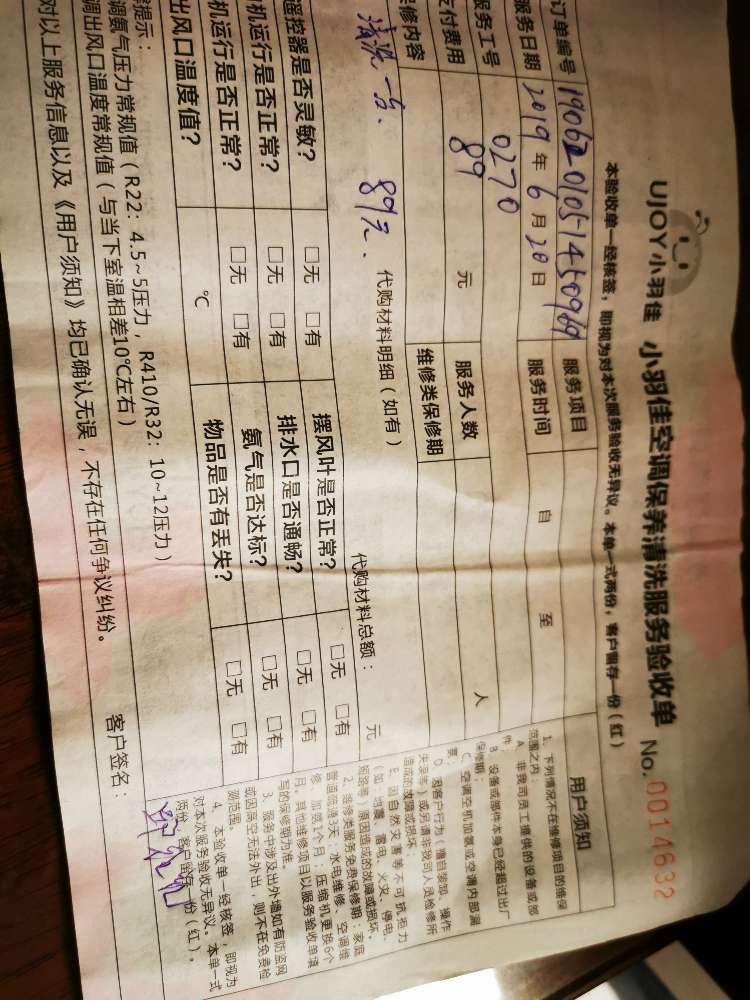 UJOY小羽佳 小羽佳空调保养清洗服务验收单 No.0014632
本验收单一经核签，即视为对本次服务验收无异议。本单一式两份，客户留存一份（红）
订单编号 服务项目
服务日期 2019年6月20日 服务时间 自 至
服务工号 0270
支付费用 89 元 服务人数 人
修内容 维修类保修期
清洗一台、89元. 代购材料明细（如有） 代购材料总额： 元
遥控器是否灵敏? □无 □有 摆风叶是否正常? □无 □有
机运行是否正常? □无 □有 排水口是否通畅? □无 □有
机运行是否正常? □无 □有 氨气是否达标? □无 □有
出风口温度值? ℃ 物品是否有丢失? □无 □有
提示：
调氨气压力常规值（R22：4.5~5压力，R410/R32：10~12压力）
调出风口温度常规值（与当下室温相差10℃左右）
对以上服务信息以及《用户须知》均已确认无误，不存在任何争议纠纷。
客户签名：
用户须知
1、下列情况不在维修项目的维保
范围之内：
A、非我司员工提供的设备或部
件；
B、设备或部件本身已经超过出厂
保修期；
C、空调空机加氨或空调内部漏
氨；
D、因客户行为（擅自装卸、操作
失误等）或另请非我司人员检修所
造成的故障或损坏；
E、因自然灾害等不可抗拒力
（如：地震、雷电、火灾、停电、
短路等）原因造成的故障或损坏。
2、维修类服务免费保修期：家庭
管道疏通3天；水电维修、空调维
修、加氨1个月；压缩机更换6个
月。其他维修项目以服务验收单填
写的保修期为准。
3、服务中涉及出外墙如有防盗网
或因高空无法外出，则不在免费检
测范围。
4、本验收单一经核签，即视为
对本次服务验收无异议。本单一式
两份，客户留存一份（红）。